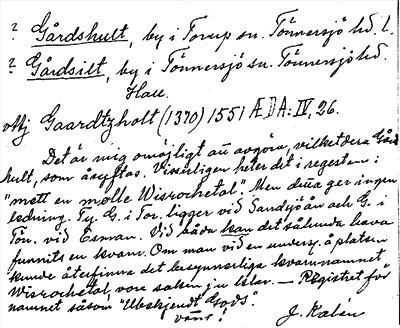 ? Gårdshult, by i Torup sn. Tönnersjö hd. L.
? Gårdsilt, by i Tönnersjö sn. Tönnersjö hd.
Hall.
Gaardtzholt (1370) 1551 ÆDA: IV, 26.
Det är mig omöjligt att avgöra, vilketdera Gårds
hult, som åsyftas. Visserligen heter det i regesten:
"mett en mølle Wisrochetal". Men detta ger ingen
ledning. Ty G. i Tor. ligger vid Sandsjöån och G. i
Tön. vid Esman. Vid båda kan det sålunda hava
funnits en kvarn. Om man vid en undersög. å platsen
kunde återfinna det besynnerliga kvarnnamnet
Wisrochetal, vore saken ju klar. — Registret för
namnet såsom "Ubekjendt Gods".
J. Kalén